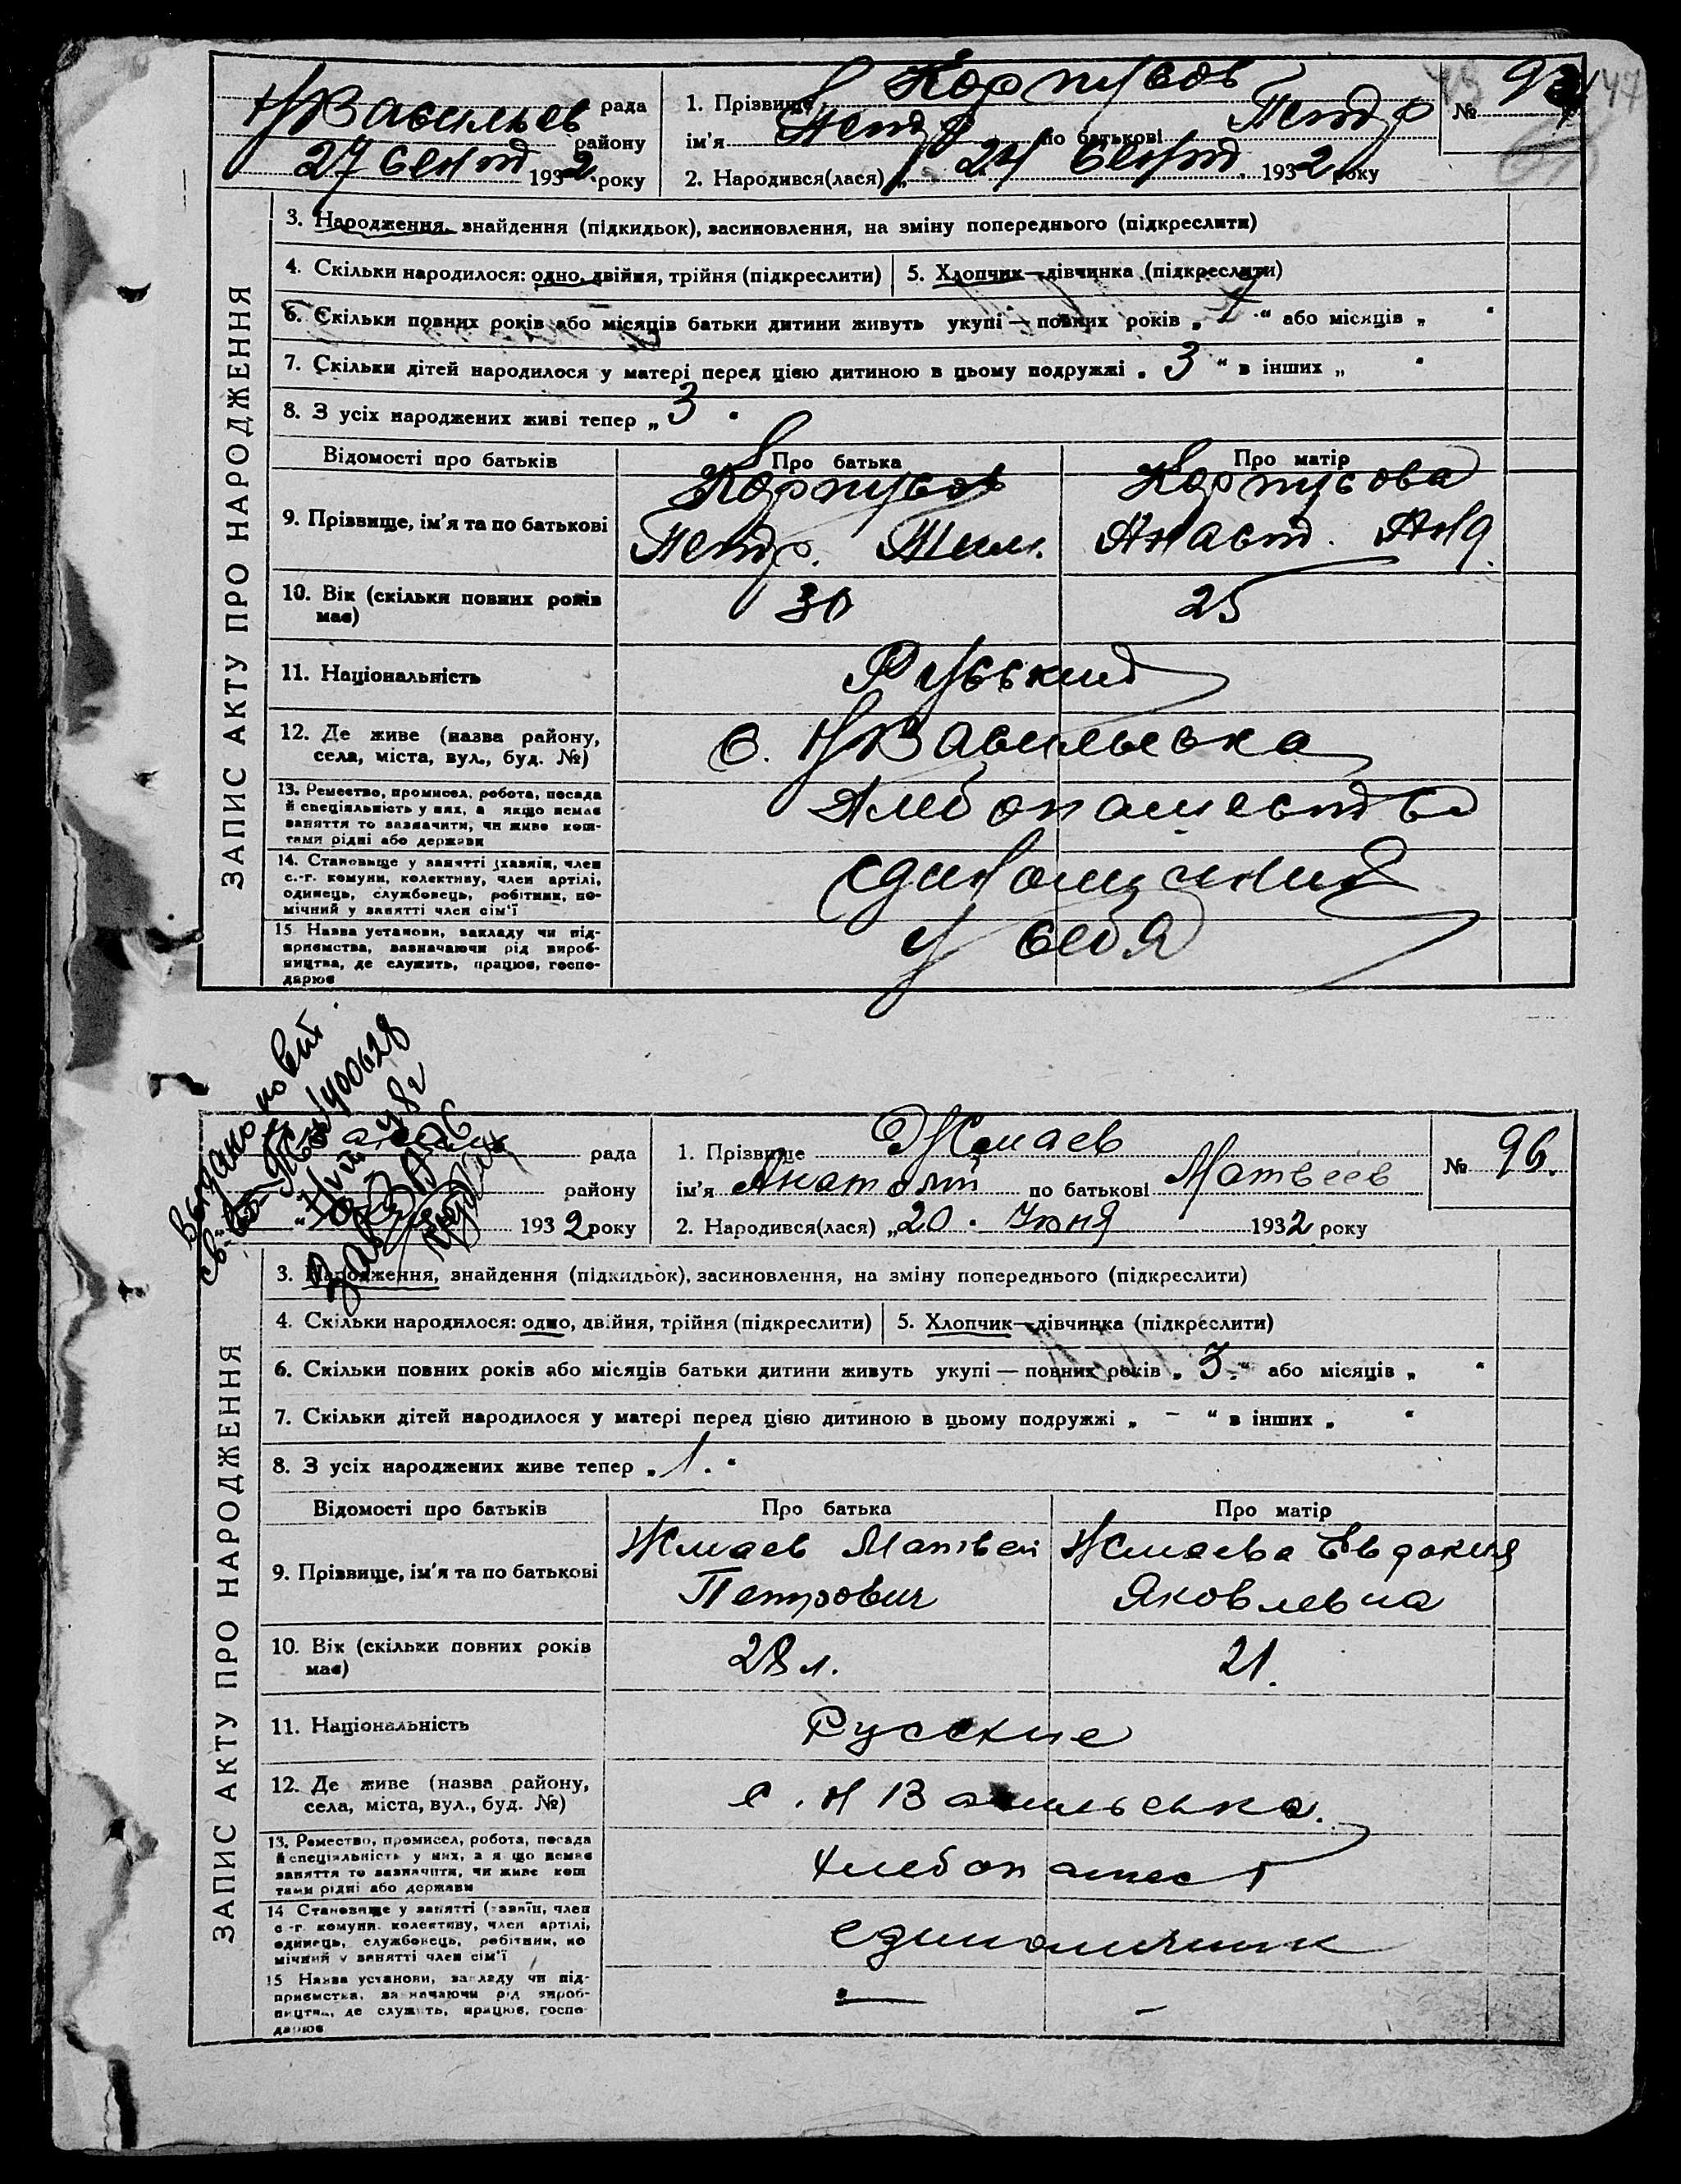 НВасильев рада
району
27 сент 1932 року
1. Прізвище Корпусов
ім'я Петр по батькові Петр
2. Народився(лася) „ 24 сент. 1932 року
№
ЗАПИС АКТУ ПРО НАРОДЖЕННЯ
3. Народження, знайдення (підкидьок), засиновлення, на зміну попереднього (підкреслити)
4. Скільки народилося: одно, двійня, трійня (підкреслити) 5. Хлопчик—дівчинка (підкреслити)
6. Скільки повних років або місяців батьки дитини живуть укупі — повних років „ “ або місяців „ “
7. Скільки дітей народилося у матері перед цією дитиною в цьому подружжі „ 3 “ в інших „ “
8. З усіх народжених живі тепер „ 3 “
Відомості про батьків Про батька Про матір
9. Прізвище, ім'я та по батькові Корпусов Корпусова
Петр. Анаст.
10. Вік (скільки повних років має) 30 25
11. Національність Руський
12. Де живе (назва району, села, міста, вул., буд. №) с. НВасильевка
13. Ремество, промисел, робота, посада
й спеціяльність у них, а якщо немає
заняття то зазначити, чи живе кош-
тами рідні або держави
Хлебопашество
14. Становище у занятті (хазяїн, член
с.-г. комуни, колективу, член артілі,
одинець, службовець, робітник, по-
мічний у занятті член сім'ї
Единоличник
15. Назва установи, закладу чи під-
приємства, зазначаючи рід вироб-
ництва, де служить, працює, госпо-
дарює
у себя
Выдано
400628
рада
району
1932 року
1. Прізвище Жмаев
ім'я Анатолий по батькові Матвеев
2. Народився(лася) „20. Июня 1932 року
№ 96.
ЗАПИС АКТУ ПРО НАРОДЖЕННЯ
3. Народження, знайдення (підкидьок), засиновлення, на зміну попереднього (підкреслити)
4. Скільки народилося: одно, двійня, трійня (підкреслити) 5. Хлопчик—дівчинка (підкреслити)
6. Скільки повних років або місяців батьки дитини живуть укупі — повних років „ 3. “ або місяців „ “
7. Скільки дітей народилося у матері перед цією дитиною в цьому подружжі „ – “ в інших „ “
8. З усіх народжених живе тепер „ 1. “
Відомості про батьків Про батька Про матір
9. Прізвище, ім'я та по батькові Жмаев Матвей Жмаева Евдокия
Петрович Яковлевна
10. Вік (скільки повних років має) 28 л. 21.
11. Національність Русские
12. Де живе (назва району, села, міста, вул., буд. №) с. Н Васильевка.
13. Ремество, промисел, робота, посада
й спеціяльність у них, а якщо немає
заняття то зазначити, чи живе кош
тами рідні або держави
хлебопашест
14 Становище у занятті (хазяїн, член
с.-г. комуни, колективу, член артілі,
одинець, службовець, робітник, по
мічний у занятті член сім'ї
единоличник
15 Назва установи, закладу чи під-
приємства, зазначаючи рід вироб-
ництва, де служить, працює, госпо-
дарює
— –